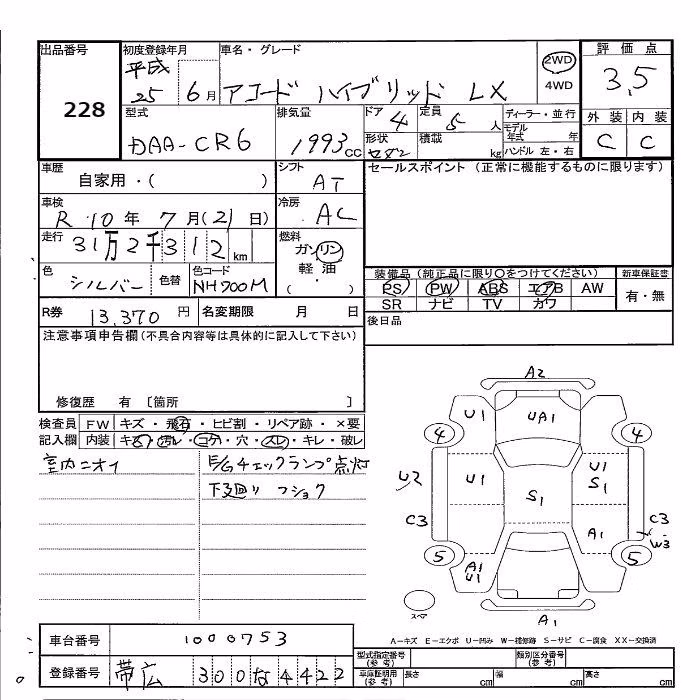 出品番号 初度登録年月 車名・グレード 2WD 評価点
228 平成 25 6月 アコード ハイブリッド LX 4WD 3,5
型式 排気量 ドア 4 定員 5人 ディーラー・並行 外装 内装
DAA-CR6 1993cc 形状 セダン 積載 kg モデル年式 年 ハンドル 左・右 C C
車歴 シフト セールスポイント(正常に機能するものに限ります)
自家用・( ) AT
車検 冷房
R 10年 7月(21日) AC
走行 燃料
31万2千312km ガソリン
軽油
・( )
色 シルバー 色替 色コード NH700M
装備品(純正品に限り○をつけてください) 新車保証書
PS PW ABS エアB AW 有・無
SR ナビ TV カワ
R券 13,370円 名変期限 月 日 後日品
注意事項申告欄(不具合内容等は具体的に記入して下さい)
修復歴 有 〔箇所 〕
検査員 FW キズ・飛石・ヒビ割・リペア跡・×要
記入欄 内装 キズ・汚れ・コゲ・穴・スレ・キレ・破レ
室内ニオイ E/Gチェックランプ点灯
下廻り フショク
A2
U1 UA1
4 4
U2 U1 S1 U1 S1
C3 A1 C3
W3
5 5
A1 U1
スペア A1
A−キズ E−エクボ U−凹み W−補修跡 S−サビ C−腐食 XX−交換済
車台番号 1000753
型式指定番号(参考) 類別区分番号(参考)
登録番号 帯広 300 な 4422
車庫証明用(参考) 長さ cm 幅 cm 高さ cm